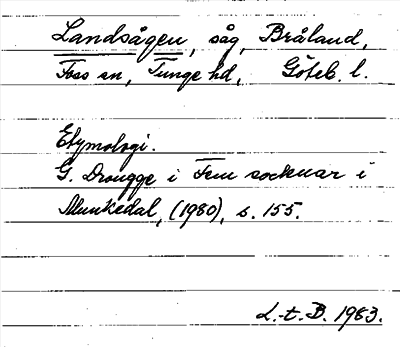 Landsågen, såg, Bråland,
Foss sn, Tunge hd, Göteb. l.
Etymologi.
G. Drougge i Fem socknar i
Munkedal, (1980), s. 155.
L.-t. B. 1983.